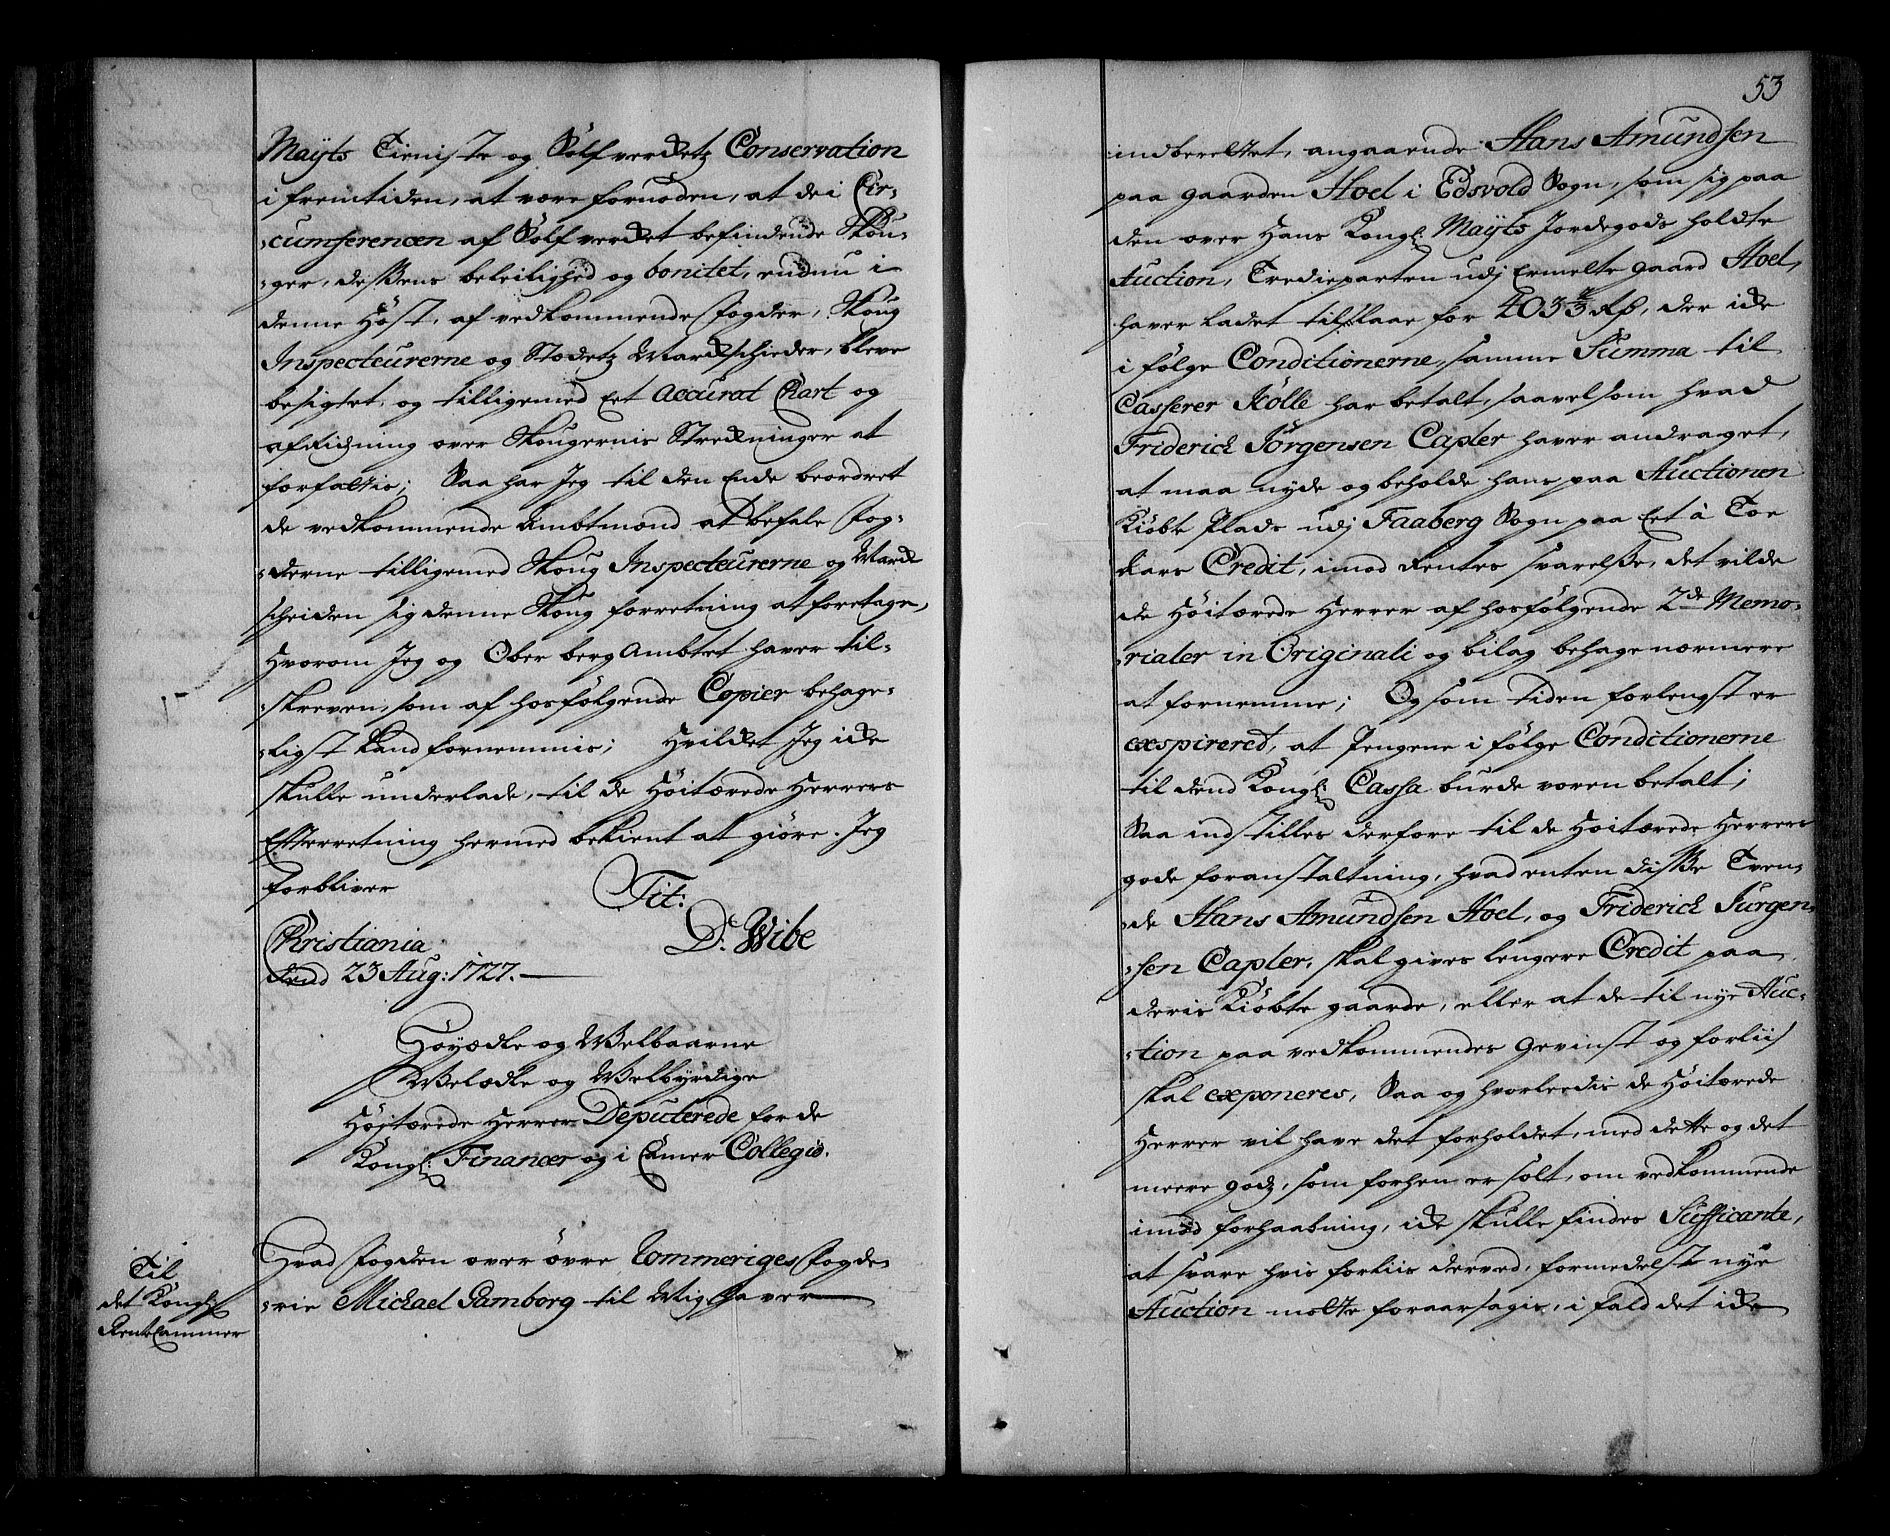 Mayts Tieniste og Sølfverkets Conservation
i fremtiden, at være fornøden, at de i Cir-
cumferencen af Sølfverket befindende Skou-
ger, dessens beleilighed og bonitet, endnu i
denne Høst, af vedkommende Fogder, Skoug
Inspecteurerne og Stedetz Markschieder, bleve
besigtet, og tilligemed Eet Accurat Chart og
afridning over Skougernis Strekninger at
forfattis; Saa har Jeg til den Ende beordret
de vedkommende Ambtmænd at befale Fog-
derne tilligemed Skoug Inspecteurerne og Mark
scheiden sig denne Skoug forretning at foretage,
Hvorom Jeg og Ober berg Ambtet haver til-
skreven, som af hosfølgende Copier behage-
ligst kand fornemmis; Hvilket Jeg icke
skulle underlade, til de Høitærede Herrers
Efterretning hermed bekient at giøre. Jeg
forbliver
Tit:
D: Wibe
Christiania
dend 23 Aug: 1727.
Høyædle og Welbaarne
Welædle og Welbyrdige
Høitærede Herrer Deputerede for de
Kongl: Financer og i Camer Collegio.
Til
det Kongl:
Rente Cammer
Hvad Fogden over øvre Rommeriges Fogde-
rie Michael Ramborg til Mig haver
53
indberettet, angaaende Hans Amundsen
paa gaarden Hoel i Edsvold Sogn, som sig paa
den over Hans Kongl: Mayts Jordegods holdte
Auction, Tredieparten udj Ermelte gaard Hoel,
haver ladet tilslaae for 403 1/3 Rd, der icke
i følge Conditionerne, samme Summa til
Casserer Kølle har betalt, saavelsom hvad
Friderich Jørgensen Capler haver andraget,
at maa nyde og beholde hans paa Auctionen
Kiøbte Plads udj Faaberg Sogn paa Eet à Toe
Aars Credit, imod Rentes svarelse, det vilde
de Høitærede Herrer af hosfølgende 2de Memo-
rialer in Originali og bilag behage nærmere
at fornemme; Og som tiden forlengst er
exspireret, at Pengene i følge Conditionerne
til dend Kongl: Cassa burde væren betalt;
Saa indstilles derfore til de Høitærede Herrers
gode foranstaltning, hvad enten disse Tven-
de Hans Amundsen Hoel, og Friderich Jurgen-
sen Capler, skal gives lengere Credit paa
deris Kiøbte gaarde, eller at de til nye Auc-
tion paa vedkommendes gevinst og forliis
skal exponeres, Saa og hvorledis de Høitærede
Herrer vil have det forholdet, med dette og det
meere godz, som forhen er solt, om vedkommende
imod forhaabning, icke skulle findes Sufficante,
at svare hvis forliis derved, formedelst nye
Auction motte foraarsagis, i fald det icke